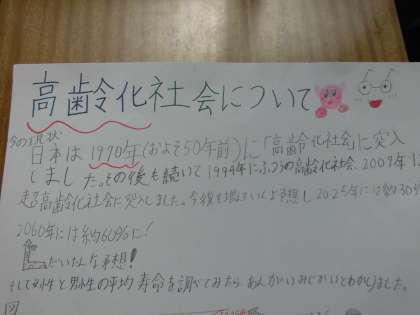 高齢化社会について
今の現状
日本は1970年(およそ50年前)に「高齢化社会」に突入
しました。その後も続いて1994年にふつうの高齢社会、2007年に
超高齢化社会に突入しました。今後も増えていくと予想し2025年には約30%
2060年には約60%に!
だいたんな予想!
そして女性と男性の平均寿命を調べてみたら、あんがいみじかいとわかりました。
図